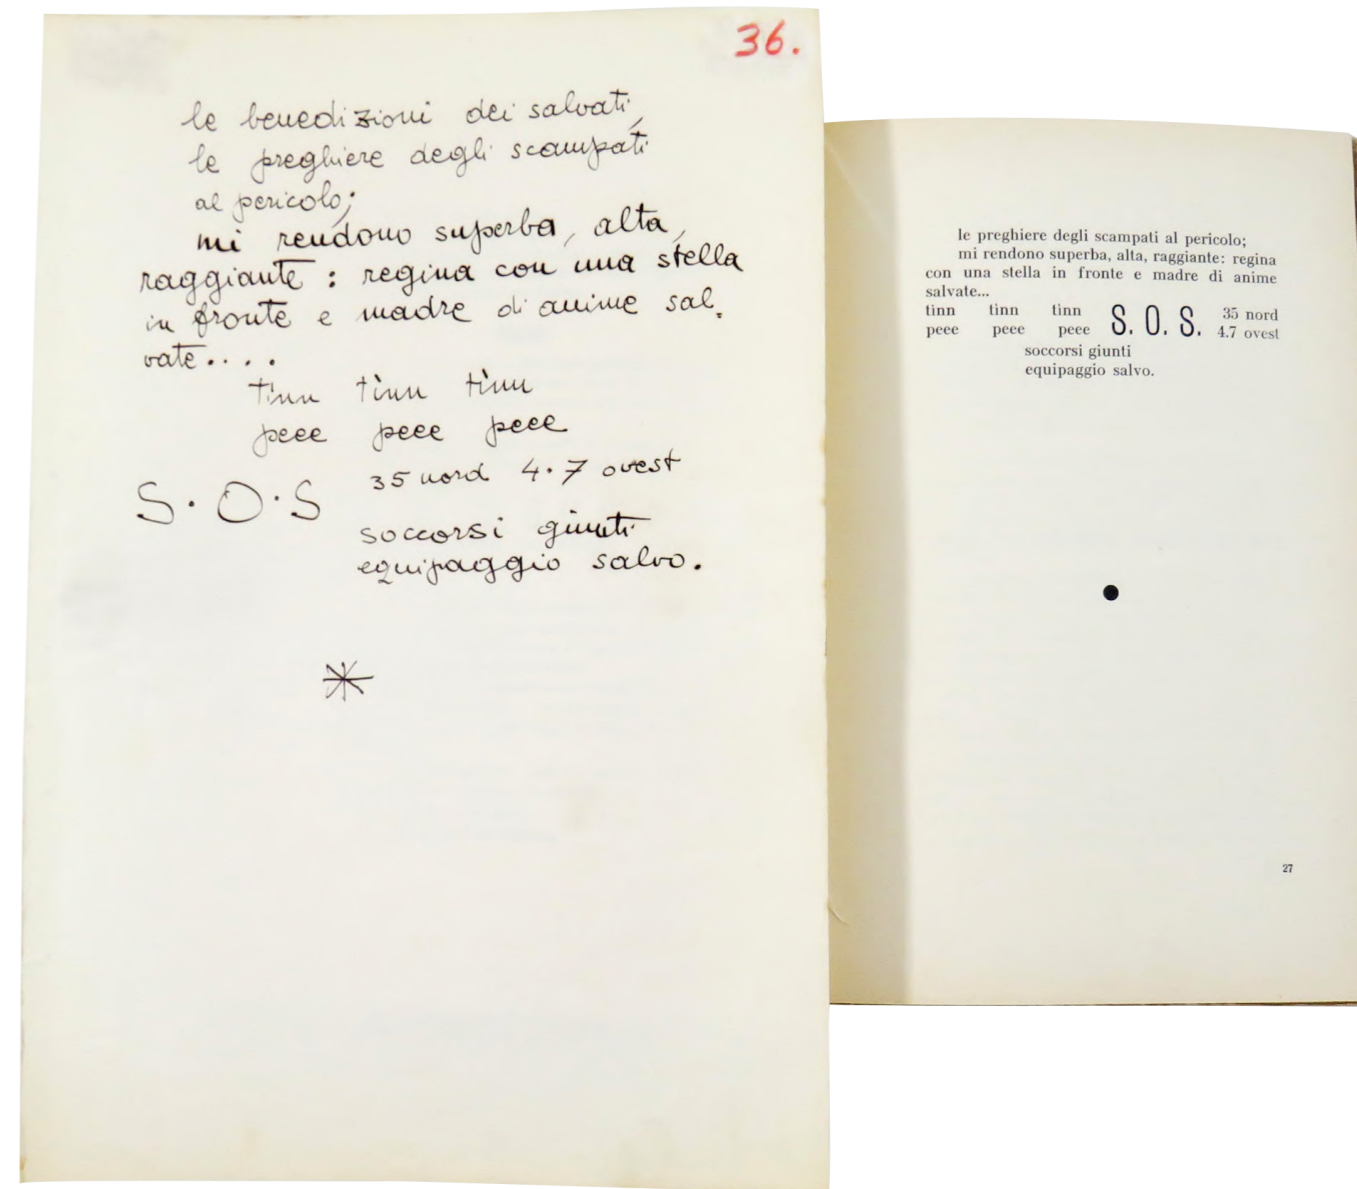 36.
le benedizioni dei salvati,
le preghiere degli scampati
al pericolo;
mi rendono superba, alta,
raggiante: regina con una stella
in fronte e madre di anime sal-
vate....
tinn tinn tinn
peee peee peee
S.O.S 35 nord 4.7 ovest
soccorsi giunti
equipaggio salvo.
le preghiere degli scampati al pericolo;
mi rendono superba, alta, raggiante: regina
con una stella in fronte e madre di anime
salvate...
tinn tinn tinn S. O. S. 35 nord
peee peee peee 4.7 ovest
soccorsi giunti
equipaggio salvo.
27